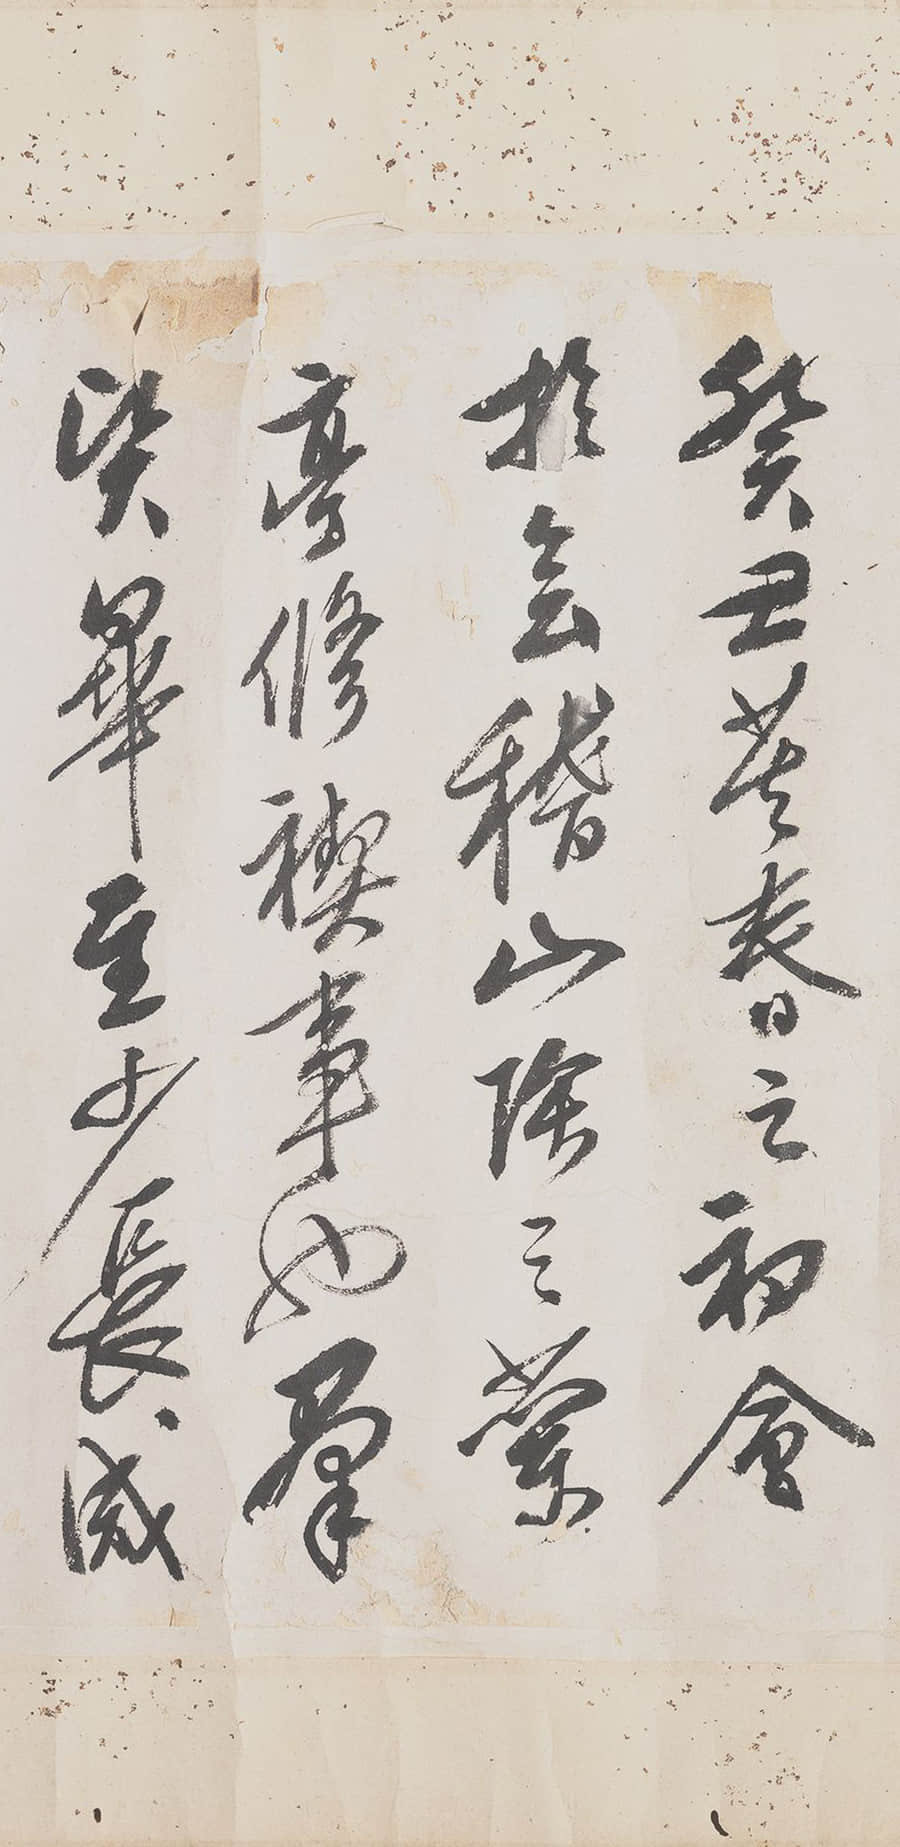 癸丑暮春之初會
於会稽山陰之蘭
亭修禊事也羣
賢畢至少長咸